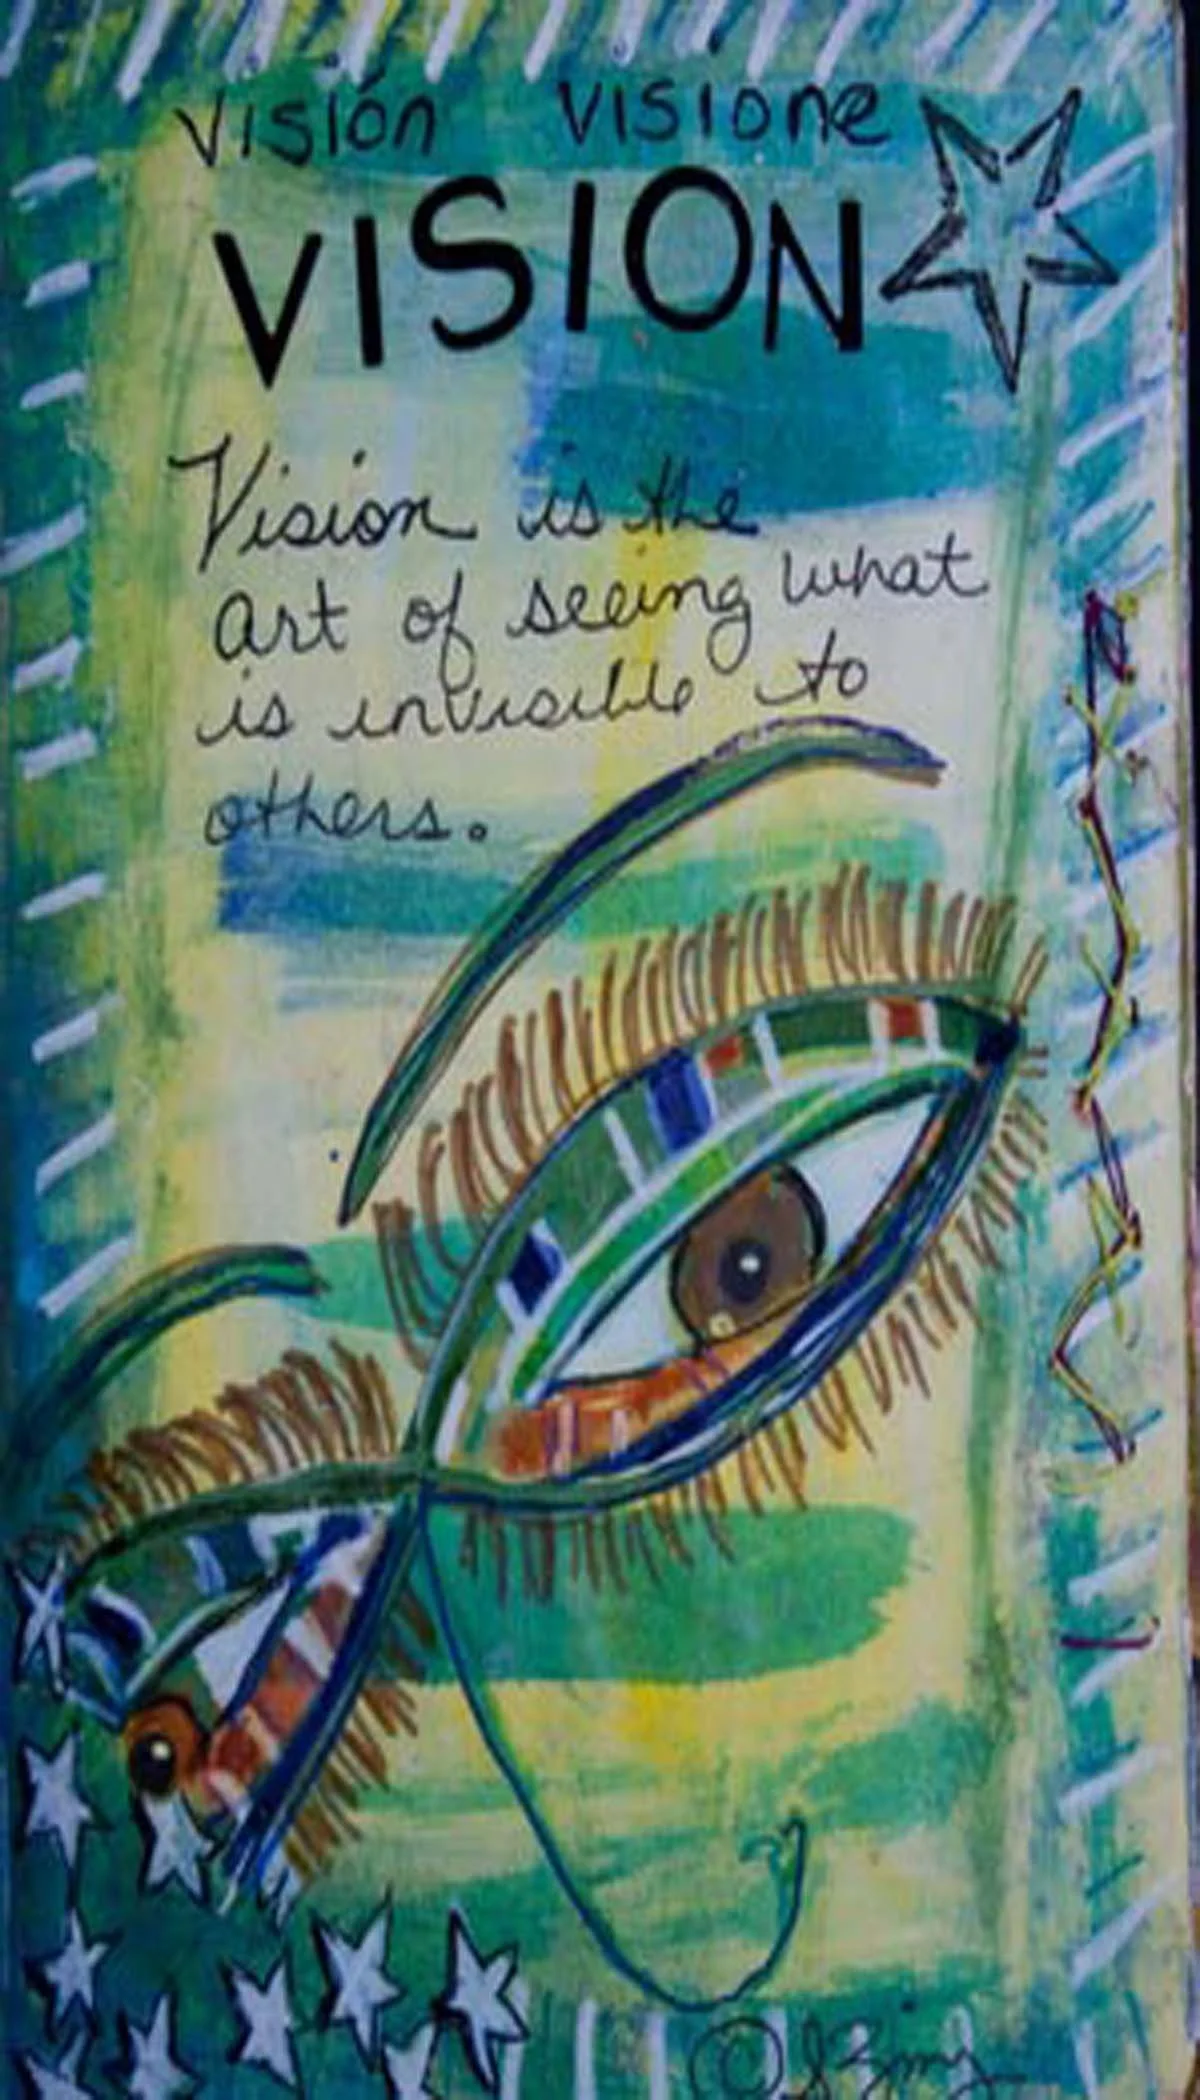 Visión visione
VISION
Vision is the
art of seeing what
is invisible to
others.